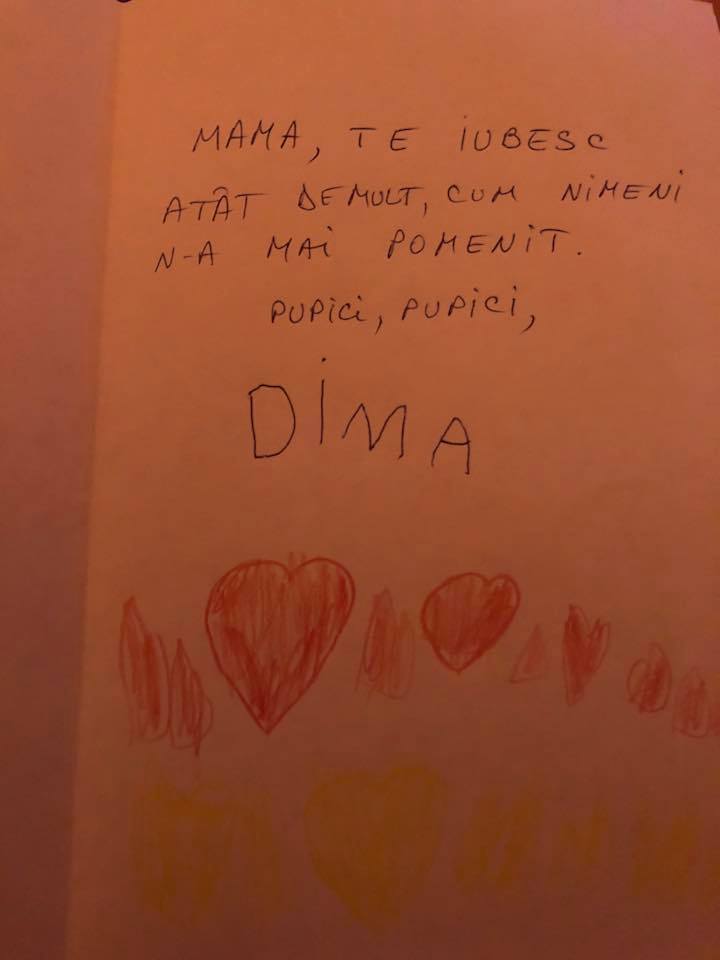 MAMA, TE IUBESC
ATÂT DEMULT, CUM NIMENI
N-A MAI POMENIT.
PUPICI, PUPICI,
DIMA